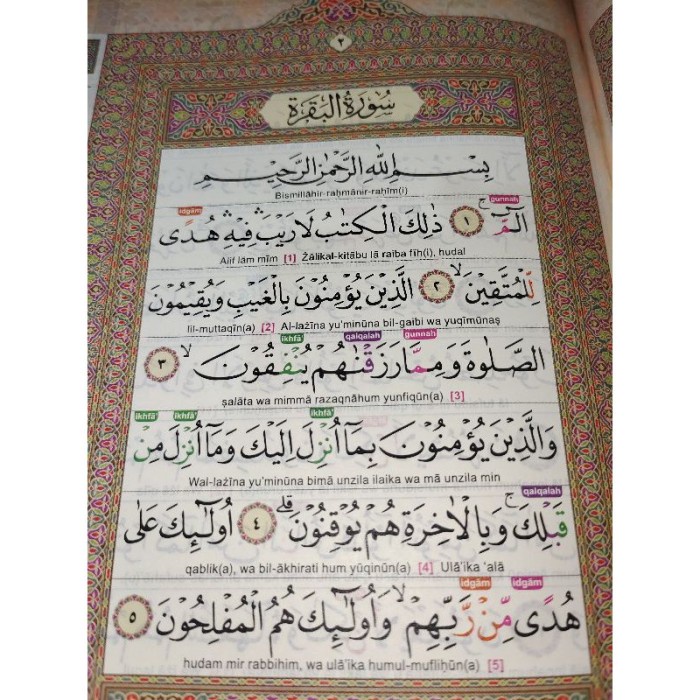 ٢
سُورَةُ الْبَقَرَةِ
بِسْمِ اللّٰهِ الرَّحْمٰنِ الرَّحِيْمِ
Bismillāhir-raḥmānir-raḥīm(i)
gunnah idgām
الۤمّۤ ۚ ١ ذٰلِكَ الْكِتٰبُ لَا رَيْبَ ۛ فِيْهِ ۛ هُدًى
Alif lām mīm [1] Żālikal-kitābu lā raiba fīh(i), hudal
لِّلْمُتَّقِيْنَ ۙ ٢ الَّذِيْنَ يُؤْمِنُوْنَ بِالْغَيْبِ وَيُقِيْمُوْنَ
lil-muttaqīn(a) [2] Al-lażīna yu'minūna bil-gaibi wa yuqīmūnaṣ
gunnah qalqalah ikhfā'
الصَّلٰوةَ وَمِمَّا رَزَقْنٰهُمْ يُنْفِقُوْنَ ۙ ٣
ṣalāta wa mimmā razaqnāhum yunfiqūn(a) [3]
ikhfā' ikhfā' ikhfā'
وَالَّذِيْنَ يُؤْمِنُوْنَ بِمَآ اُنْزِلَ اِلَيْكَ وَمَآ اُنْزِلَ مِنْ
Wal-lażīna yu'minūna bimā unzila ilaika wa mā unzila min
qalqalah
قَبْلِكَ ۚ وَبِالْاٰخِرَةِ هُمْ يُوْقِنُوْنَ ۗ ٤ اُولٰۤىِٕكَ عَلٰى
qablik(a), wa bil-ākhirati hum yūqinūn(a) [4] Ulā'ika 'alā
idgām idgām
هُدًى مِّنْ رَّبِّهِمْ ۙ وَاُولٰۤىِٕكَ هُمُ الْمُفْلِحُوْنَ ٥
hudam mir rabbihim, wa ulā'ika humul-mufliḥūn(a) [5]